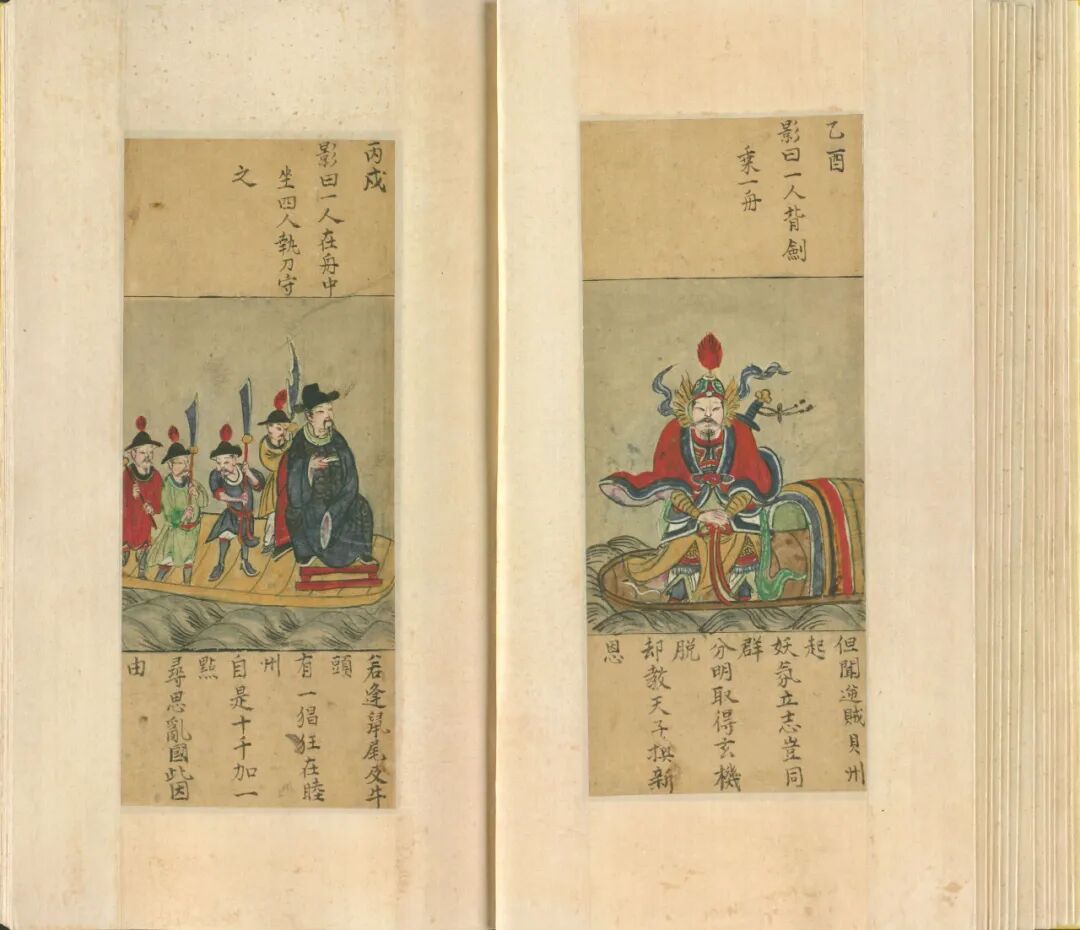 乙酉
影曰一人背劍
乘一舟
但聞逆賊貝州
起
妖氛立志豈同
群
分明取得玄機
脱
却教天子新
恩
丙戌
影曰一人在舟中
坐四人執刀守
之
若逢鼠尾及牛
頭
有一猖狂在睦
州
自是十千加一
點
尋思亂國此因
由